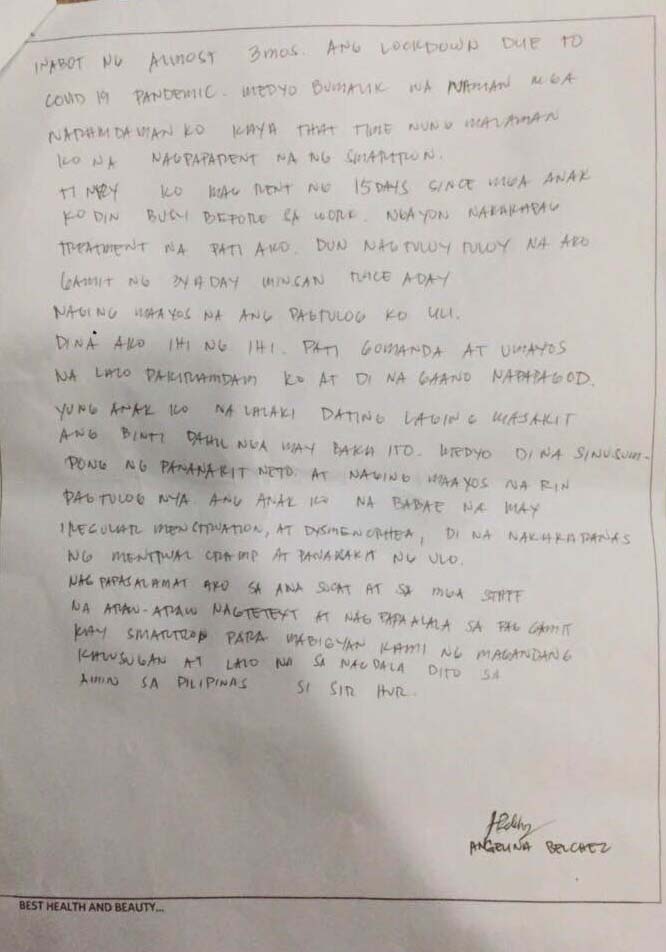 INABOT NG ALMOST 3MOS. ANG LOCKDOWN DUE TO
COVID 19 PANDEMIC. MEDYO BUMALIK NA NAMAN MGA
NARAMDAMAN KO KAYA THAT TIME NUNG MALAMAN
KO NA NAGPAPARENT NA NG SMARTRON.
TINRY KO MAG RENT NG 15DAYS SINCE MGA ANAK
KO DIN BUSY BEFORE SA WORK. NGAYON NAKAKAPAG
TREATMENT NA PATI AKO. DUN NAGTULOY TULOY NA AKO
GAMIT NG 3X A DAY MINSAN TWICE ADAY
NAGING MAAYOS NA ANG PAGTULOG KO ULI.
DI NA AKO IHI NG IHI. PATI GUMANDA AT UMAYOS
NA LALO PAKIRAMDAM KO AT DI NA GAANO NAPAPAGOD.
YUNG ANAK KO NA LALAKI DATING LAGING MASAKIT
ANG BINTI DAHIL NGA MAY BAKAL ITO. MEDYO DI NA SINUSUM-
PONG NG PANANAKIT NETO. AT NAGING MAAYOS NA RIN
PAGTULOG NYA. ANG ANAK KO NA BABAE NA MAY
IREGULAR MENSTRUATION, AT DYSMENORHEA, DI NA NAKAKARANAS
NG CRAMP AT PANANAKIT NG ULO.
NAG PAPASALAMAT AKO SA ANA SUCAT AT SA MGA STAFF
NA ARAW-ARAW NAGTETEXT AT NAG PAPAALALA SA PAG GAMIT
KAY SMARTRON PARA MABIGYAN KAMI NG MAGANDANG
KALUSUGAN AT LALO NA SA NAGDALA DITO SA
AMIN SA PILIPINAS SI SIR HUR.
ANGELINA BELCHEZ
BEST HEALTH AND BEAUTY...